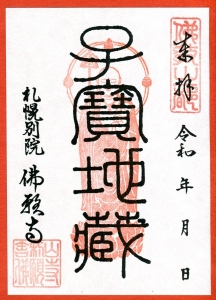 奉拝
令和 年 月 日
子寶地藏
札幌別院 佛願寺